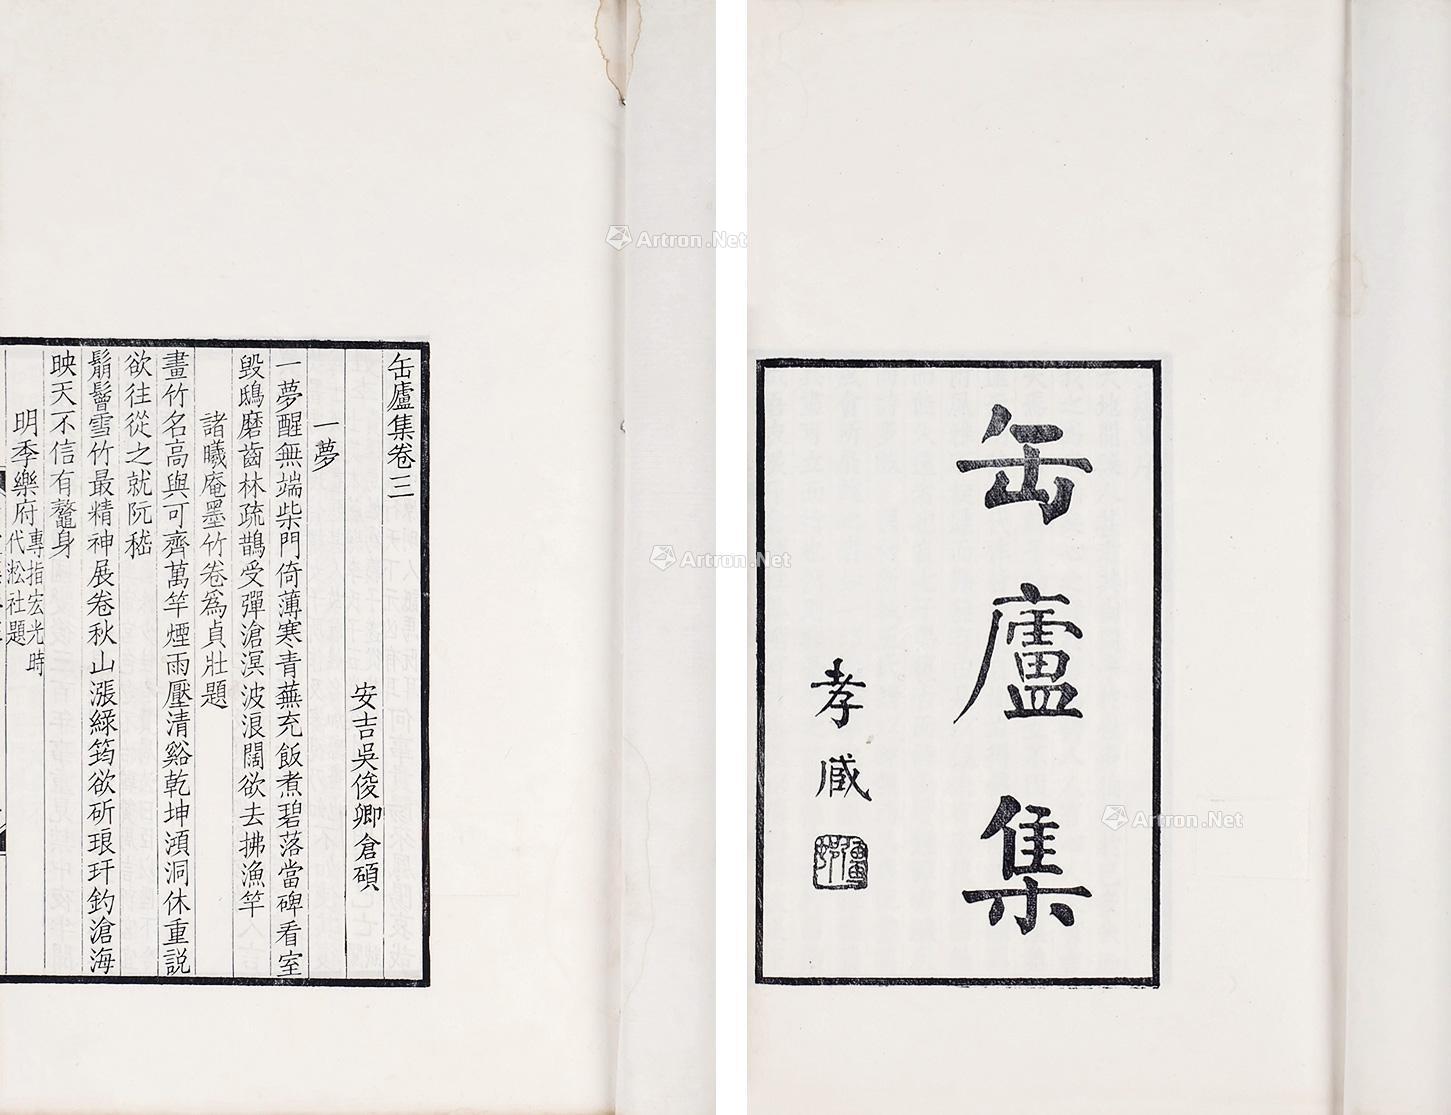 缶廬集
孝臧
缶廬集卷三
安吉吳俊卿倉碩
一夢
一夢醒無端柴門倚薄寒青蕪充飯煮碧落當碑看室
毀鴟磨齒林疏鵲受彈滄溟波浪闊欲去拂漁竿
諸曦庵墨竹卷爲貞壯題
畫竹名高與可齊萬竿煙雨壓清谿乾坤澒洞休重説
欲往從之就阮嵇
鬅鬙雪竹最精神展卷秋山漲綠筠欲斫琅玕釣滄海
映天不信有鼇身
明季樂府專指宏光時
代淞社題
Artron.Net
Artron.Net
Artron.Net